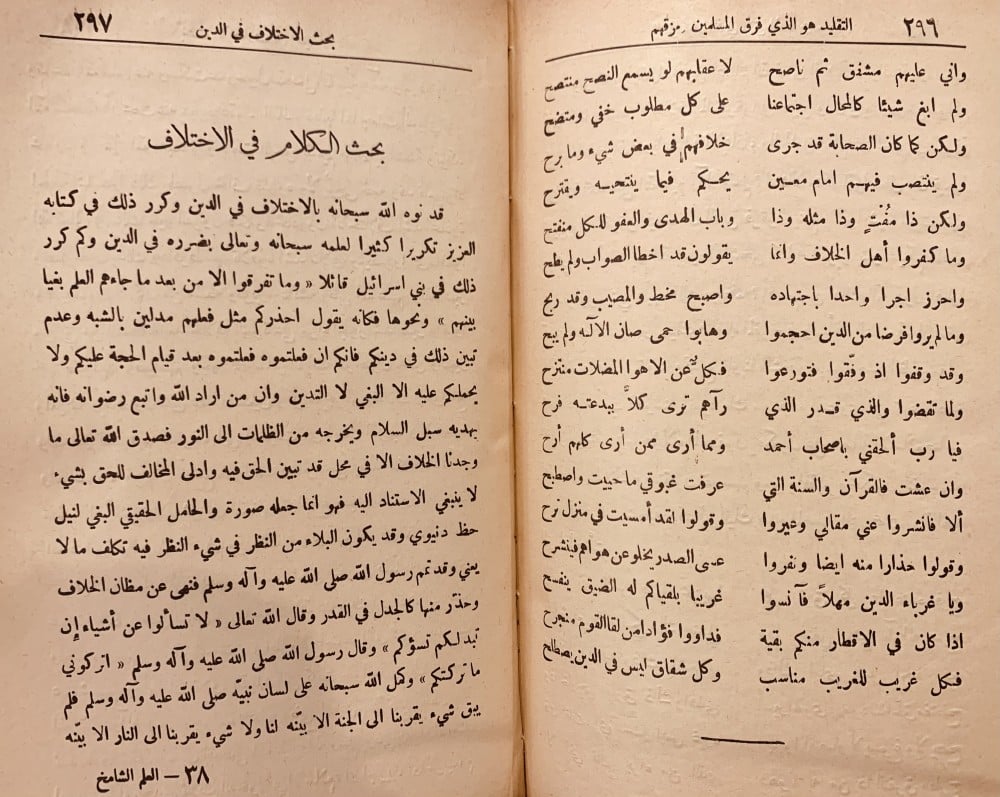 ٢٩٦ التقليد هو الذي فرق المسلمين ومزقهم
واني عليهم مشفق ثم ناصح لا عقابهم لو يسمع النصح منتصح
ولم ابغ شيئا كالمحال اجتماعنا على كل مطلوب خفي ومتضح
ولكن كما كان الصحابة قد جرى خلافهم في بعض شيء وما برح
ولم ينتصب فيهم امام معين يحكم فيما ينتحيه ويقترح
ولكن ذا مُفْتٍ وذا مثله وذا وباب الهدى والعفو للكل منفتح
وما كفروا أهل الخلاف وانما يقولون قد اخطا الصواب ولم يطح
واحرز اجرا واحدا باجتهاده واصبح مخط والمصيب وقد ربح
وما لم يروا فرضا من الدين احجموا وهابوا حمى صان الآله ولم يبح
وقد وقفوا اذ وفّقوا فتورعوا فكل عن الاهوا المضلات منتزح
ولما تقضوا والذي قدر الذي رآهم ترى كلاً ببدعته فرح
فيا رب ألحقني باصحاب أحمد ومما أرى ممن أرى كلهم أرح
وان عشت فالقرآن والسنة التي عرفت غبوقي ما حييت واصطبح
ألا فانشروا عني مقالي وعيروا وقولوا لقد أمسيت في منزل ترح
وقولوا حذارا منه ايضا ونفروا عسى الصدر يخلو عن هواهم فينشرح
ويا غرباء الدين مهلاً فآنسوا غريبا بلقياكم له الضيق ينفسح
اذا كان في الاقطار منكم بقية فداووا فؤادا من لقا القوم منجرح
فكل غريب للغريب مناسب وكل شقاق ليس في الدين يصطلح
بحث الاختلاف في الدين ٢٩٧
بحث الكلام في الاختلاف
قد نوه الله سبحانه بالاختلاف في الدين وكرر ذلك في كتابه
العزيز تكريرا كثيرا لعلمه سبحانه وتعالى بضرره في الدين وكم كرر
ذلك في بني اسرائيل قائلا « وما تفرقوا الا من بعد ما جاءهم العلم بغيا
بينهم » ونحوها فكانه يقول احذركم مثل فعلهم مدلين بالشبه وعدم
تبين ذلك في دينكم فانكم ان فعلتموه فعلتموه بعد قيام الحجة عليكم ولا
يحملكم عليه الا البغي لا التدين وان من اراد الله واتبع رضوانه فانه
يهديه سبل السلام ويخرجه من الظلمات الى النور فصدق الله تعالى ما
وجدنا الخلاف الا في محل قد تبين الحق فيه وادلى المخالف للحق بشيء
لا ينبغي الاستناد اليه فهو انما جعله صورة والحامل الحقيقي البغي لنيل
حظ دنيوي وقد يكون البلاء من النظر في شيء النظر فيه تكلف ما لا
يعني وقد تمم رسول الله صلى الله عليه وآله وسلم فنهى عن مظان الخلاف
وحذّر منها كالجدل في القدر وقال الله تعالى « لا تسألوا عن أشياء إن
تبد لكم تسؤكم » وقال رسول الله صلى الله عليه وآله وسلم « اتركوني
ما تركتكم » وكمل الله سبحانه على لسان نبيّه صلى الله عليه وآله وسلم فلم
يبق شيء يقربنا الى الجنة الا بيّنه لنا ولا شيء يقربنا الى النار الا بيّنه
٣٨ — العلم الشامخ